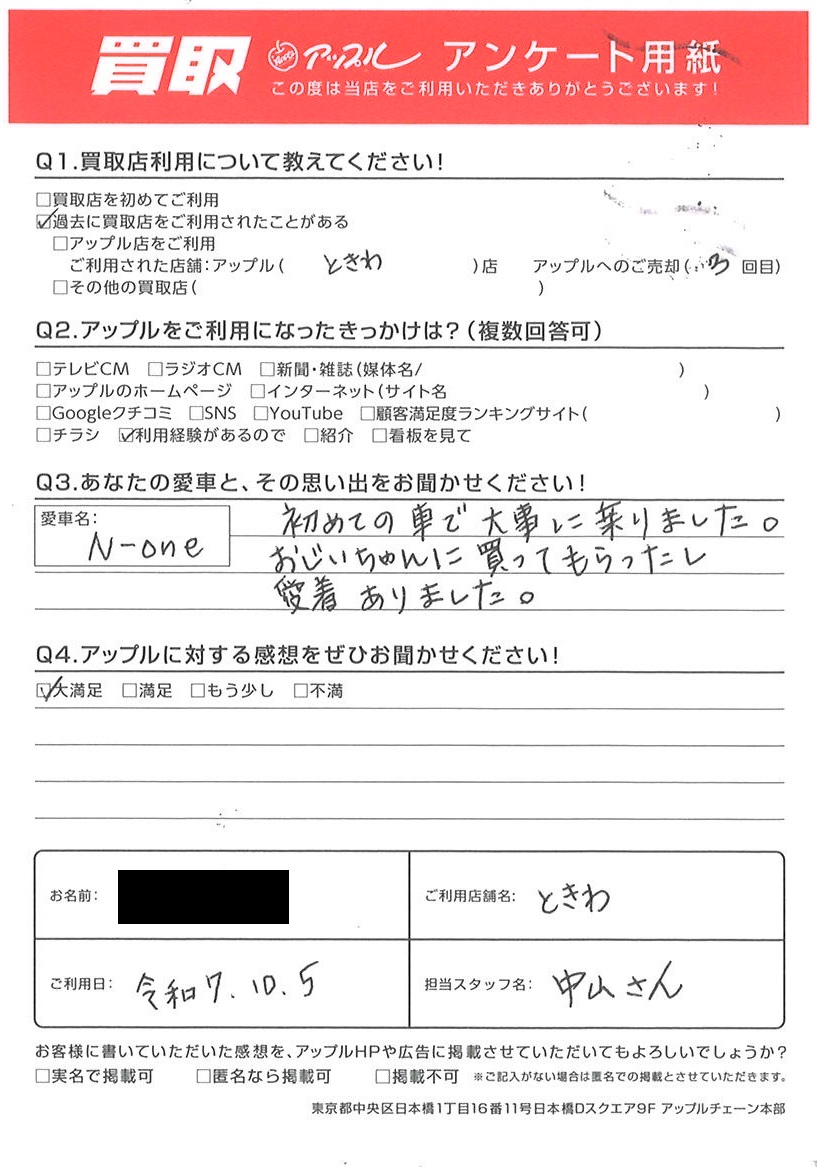 買取 アップル アンケート用紙
この度は当店をご利用いただきありがとうございます!
Q1.買取店利用について教えてください!
□買取店を初めてご利用
☑過去に買取店をご利用されたことがある
□アップル店をご利用
ご利用された店舗:アップル( ときわ )店 アップルへのご売却( 3 回目)
□その他の買取店( )
Q2.アップルをご利用になったきっかけは?(複数回答可)
□テレビCM □ラジオCM □新聞・雑誌(媒体名/ )
□アップルのホームページ □インターネット(サイト名 )
□Googleクチコミ □SNS □YouTube □顧客満足度ランキングサイト( )
□チラシ ☑利用経験があるので □紹介 □看板を見て
Q3.あなたの愛車と、その思い出をお聞かせください!
愛車名: N-one
初めての車で大事に乗りました。
おじいちゃんに買ってもらったし
愛着ありました。
Q4.アップルに対する感想をぜひお聞かせください!
☑大満足 □満足 □もう少し □不満
お名前: ご利用店舗名: ときわ
ご利用日: 令和7.10.5 担当スタッフ名: 中山さん
お客様に書いていただいた感想を、アップルHPや広告に掲載させていただいてもよろしいでしょうか?
□実名で掲載可 □匿名なら掲載可 □掲載不可 ※ご記入がない場合は匿名での掲載とさせていただきます。
東京都中央区日本橋1丁目16番11号日本橋Dスクエア9F アップルチェーン本部